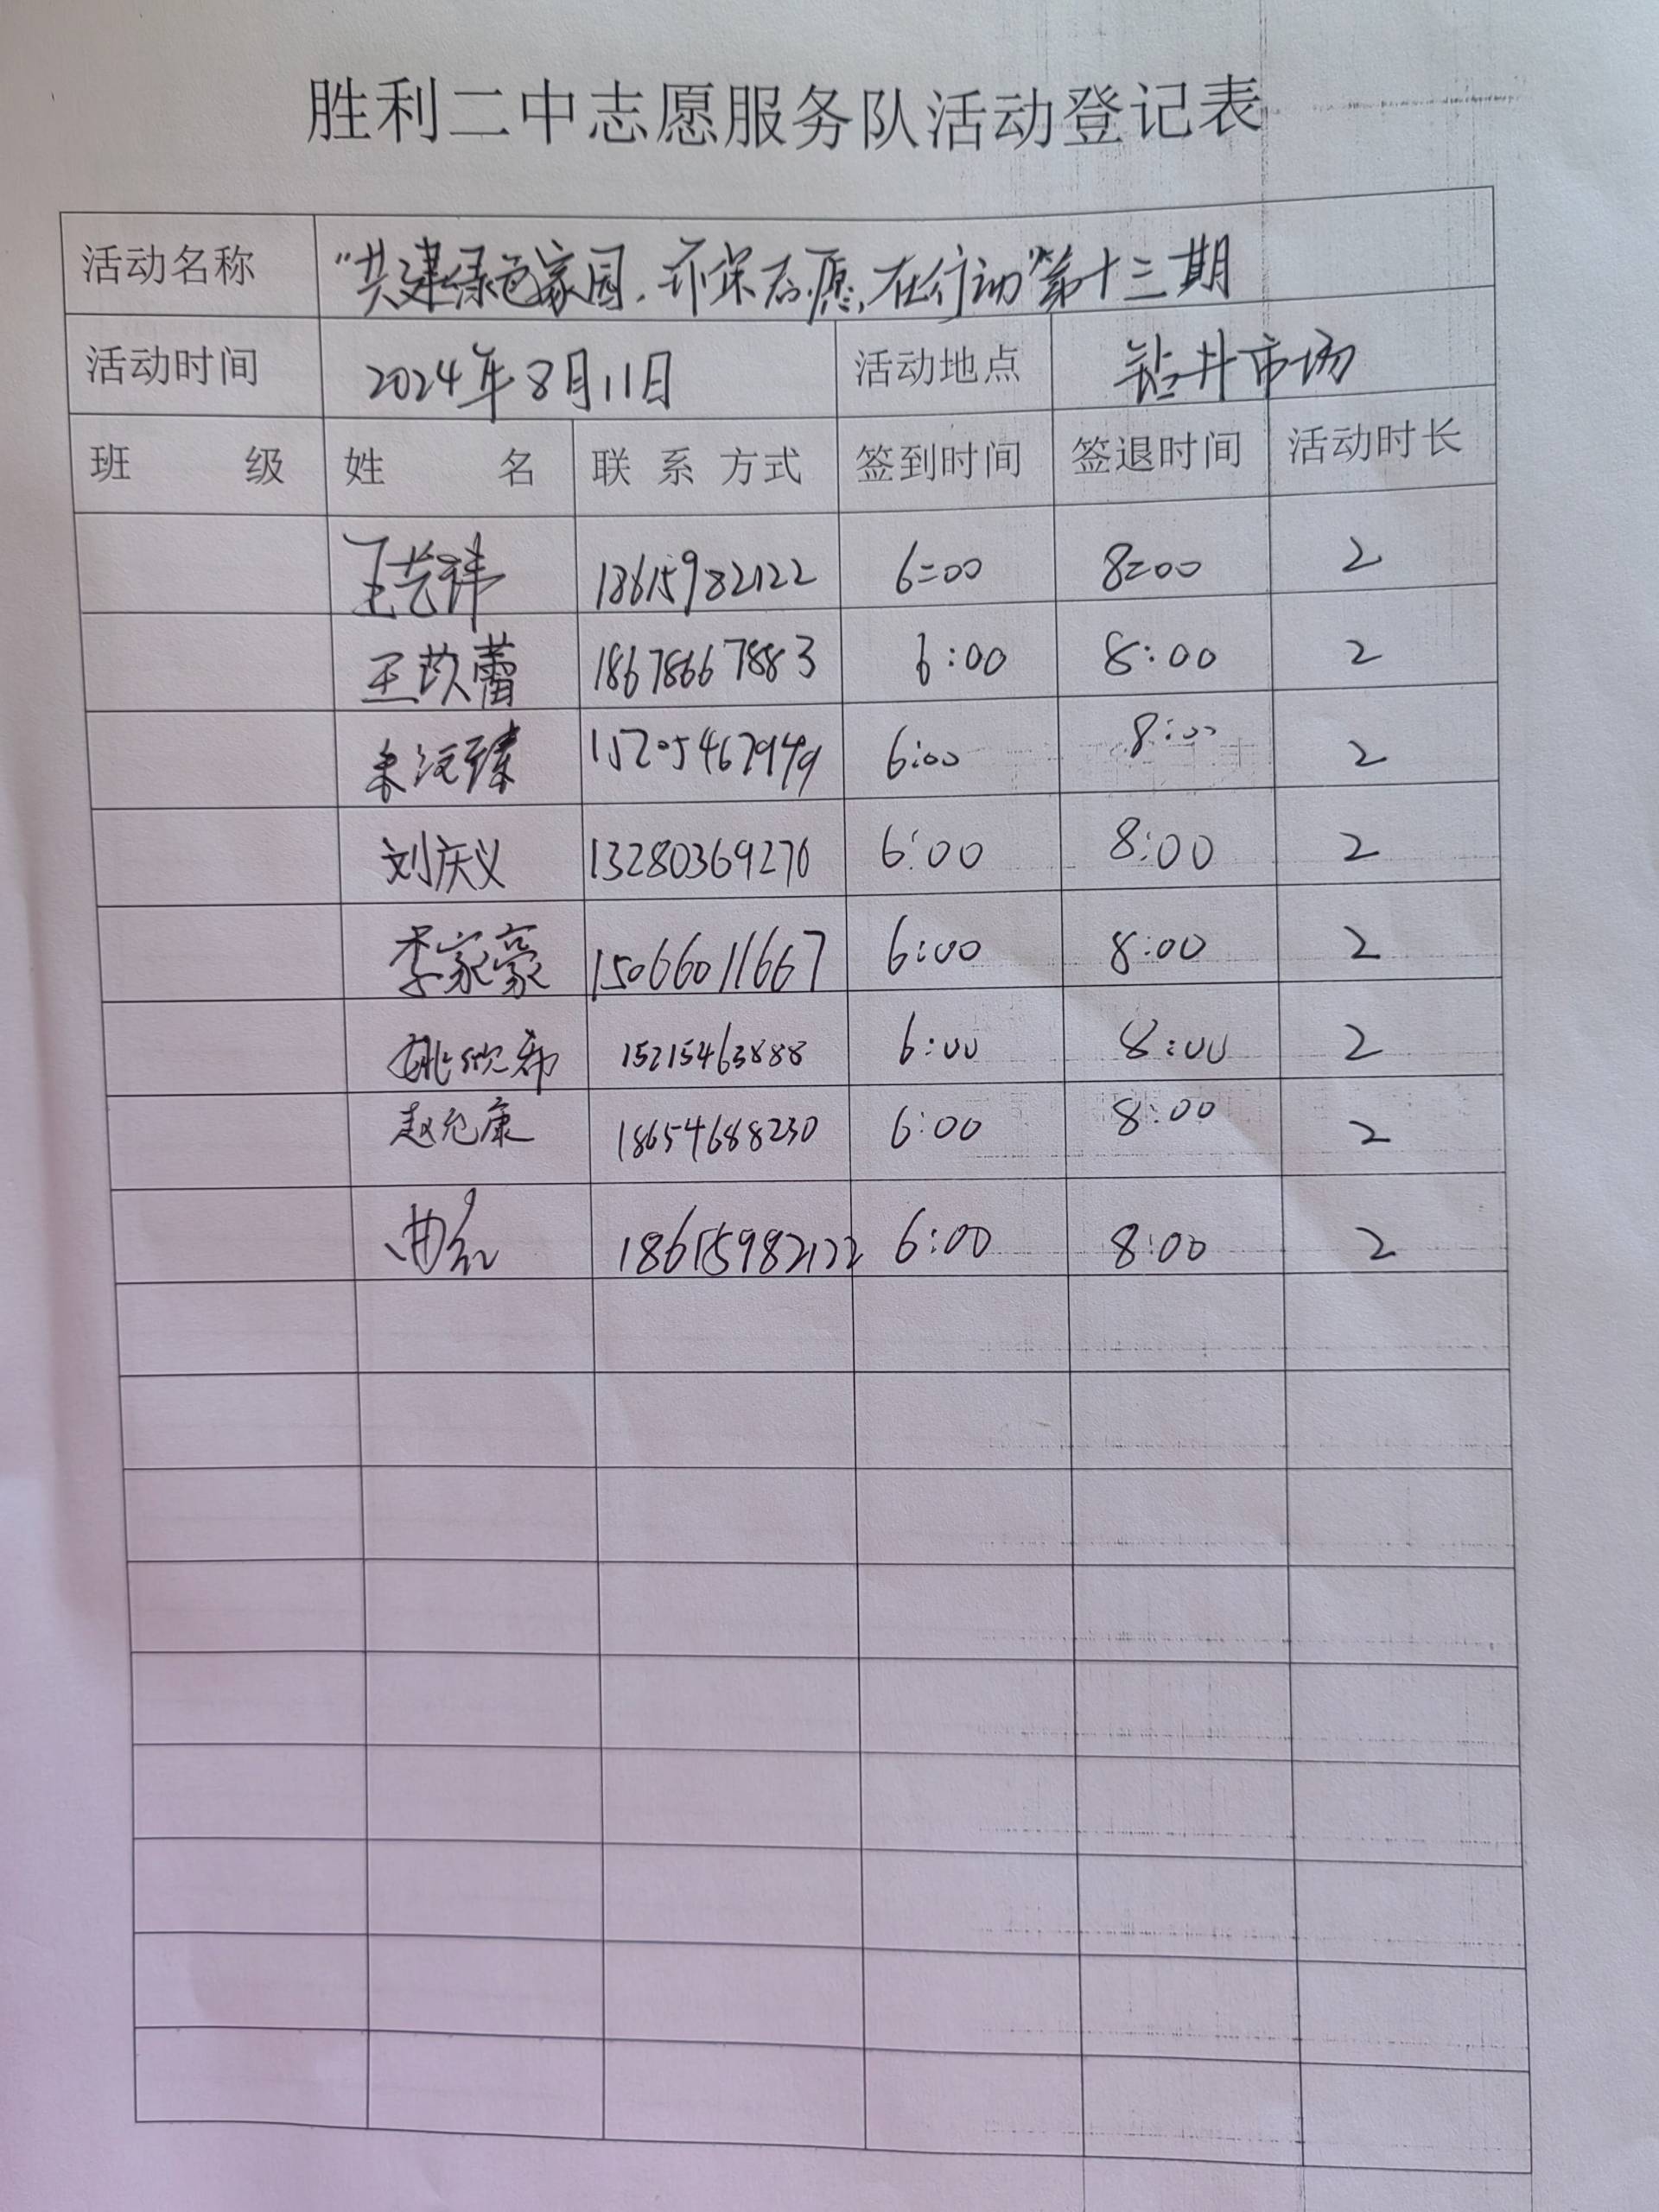 胜利二中志愿服务队活动登记表
活动名称 “共建绿色家园,环保志愿,在行动”第十三期
活动时间 2024年8月11日 活动地点 钻井市场
班 级 姓 名 联 系 方式 签到时间 签退时间 活动时长
王艺祎 18615982122 6:00 8:00 2
王玖蕾 18678667883 6:00 8:00 2
15205467949 6:00 8:00 2
刘庆义 13280369270 6:00 8:00 2
李家豪 15066011667 6:00 8:00 2
姚欣希 15215463888 6:00 8:00 2
赵允康 18654688230 6:00 8:00 2
曲红 18615982122 6:00 8:00 2